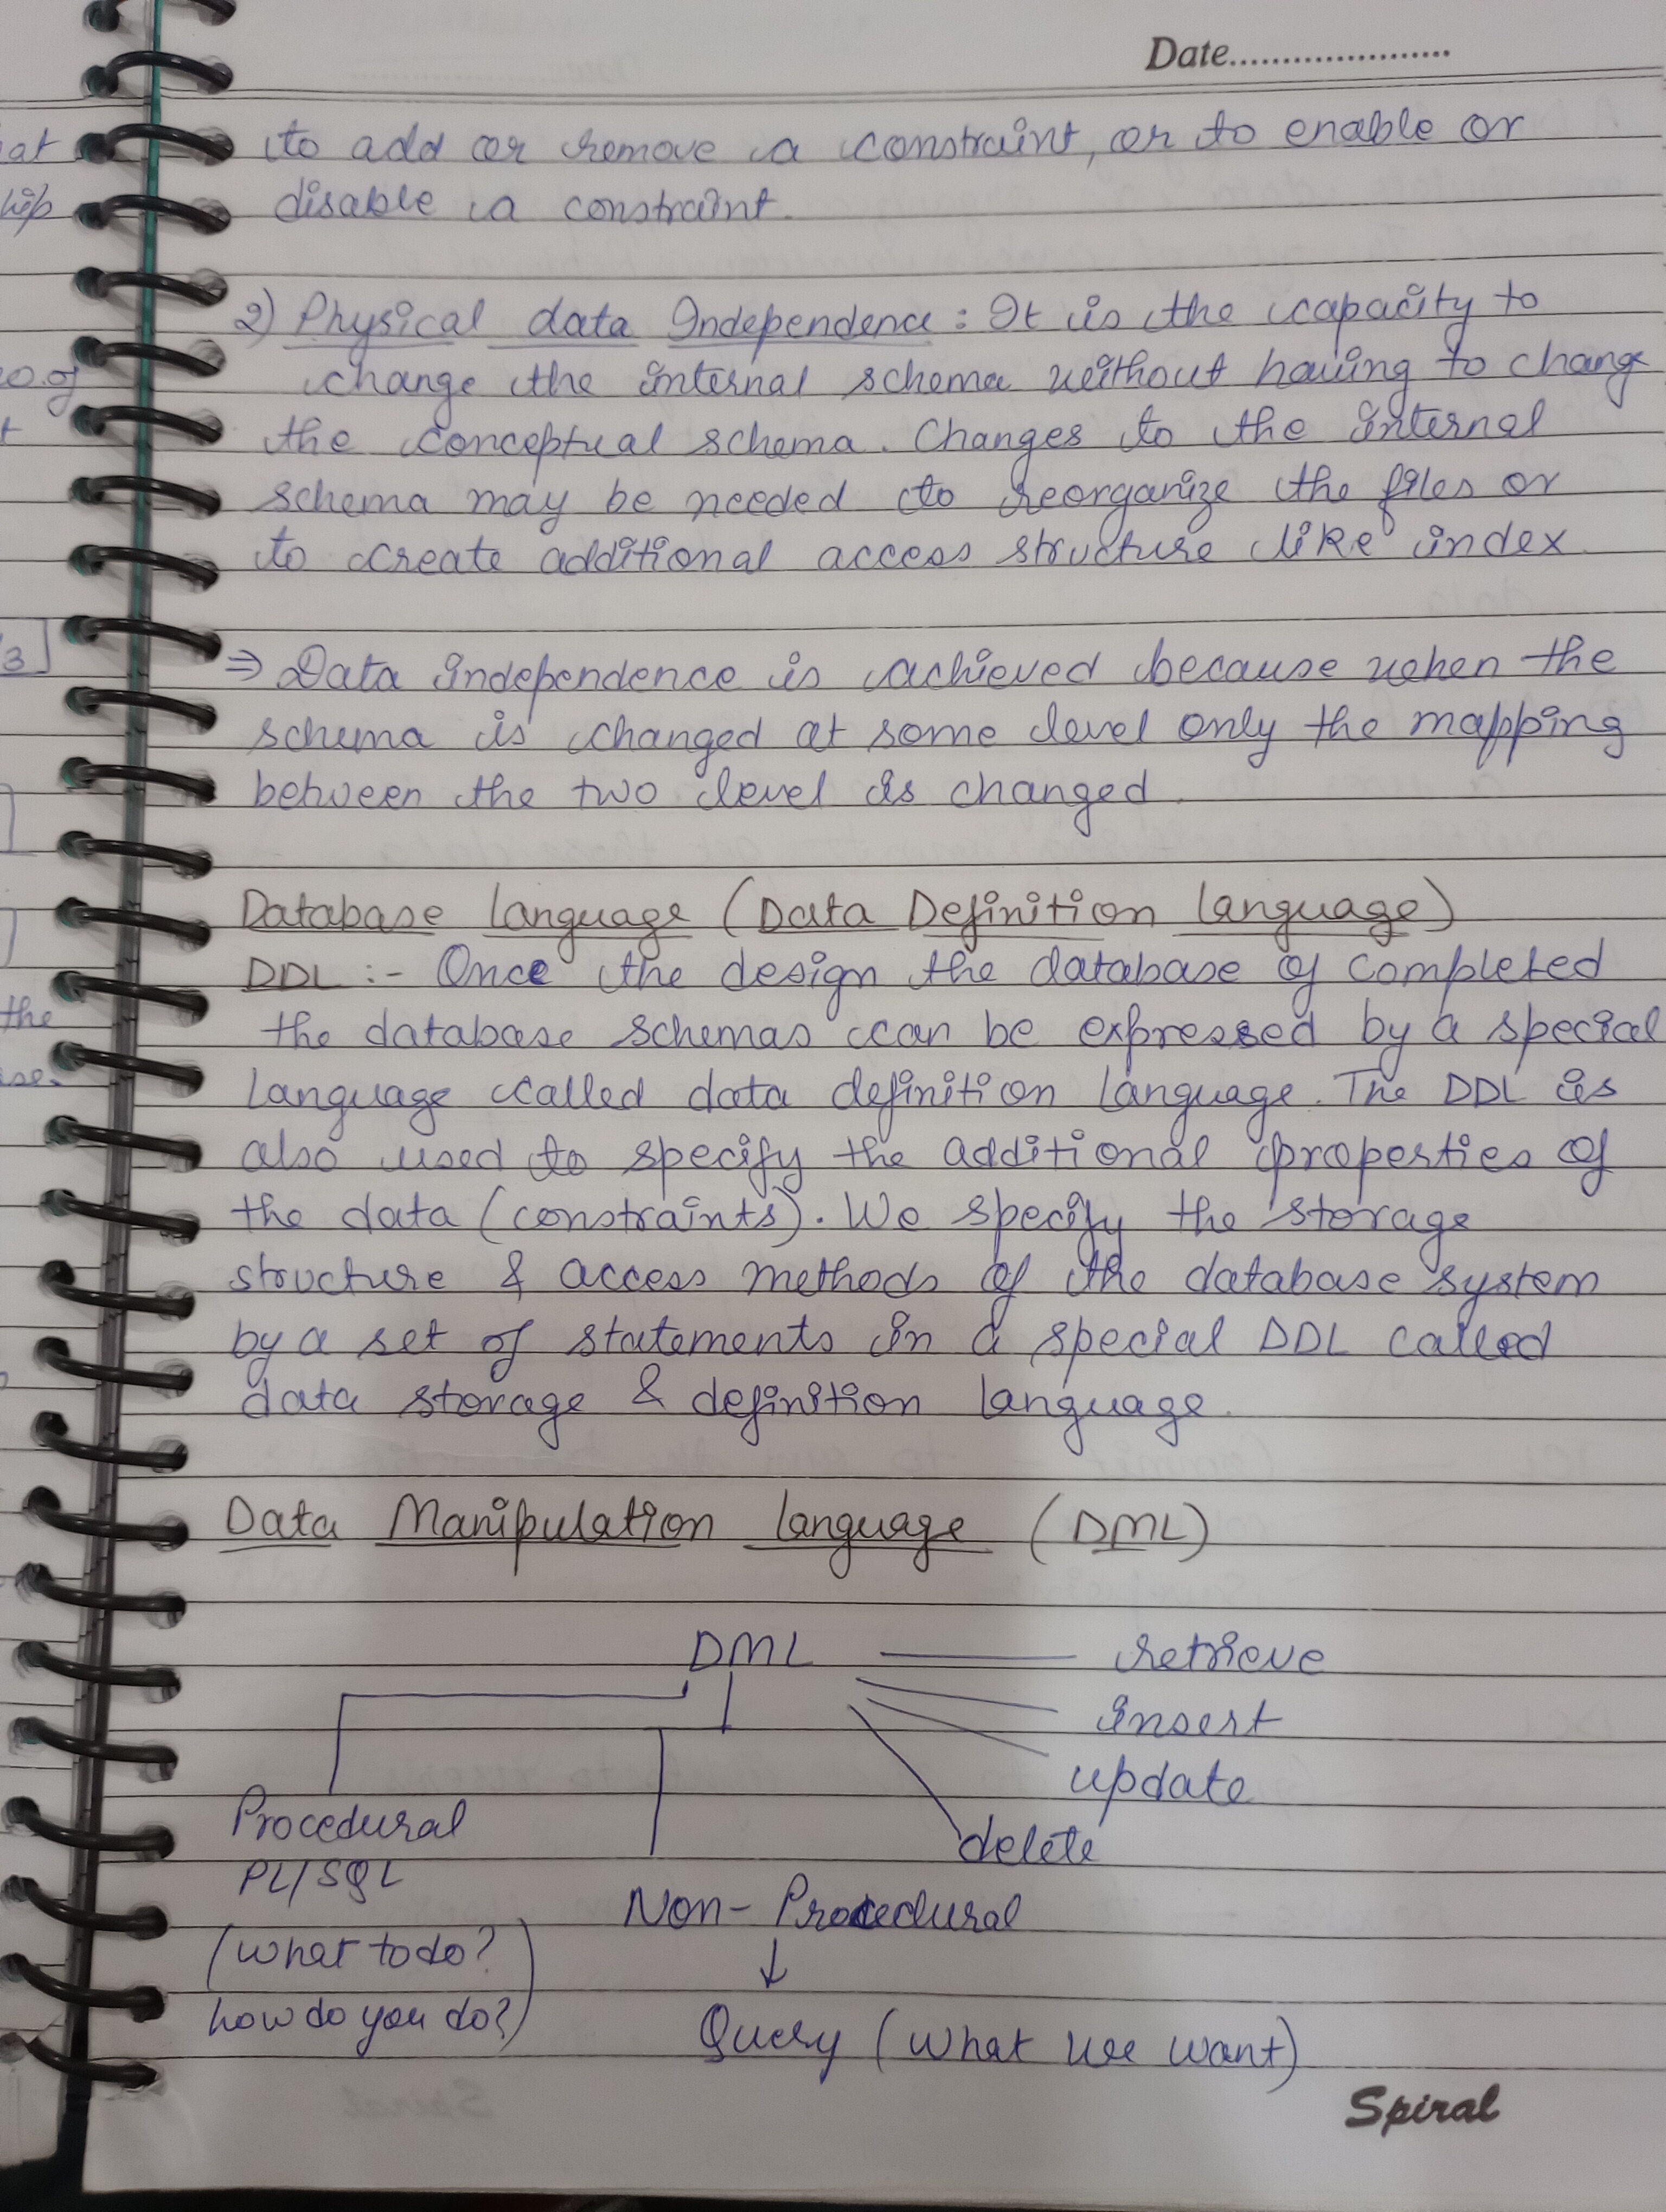 Date.....................
to add or remove a constraint, or to enable or
disable a constraint.
2) Physical data Independence : It is the capacity to
change the internal schema without having to change
the conceptual schema. Changes to the internal
schema may be needed to reorganize the files or
to create additional access structure like index
⇒ Data independence is achieved because when the
schema is changed at some level only the mapping
between the two level is changed.
Database language (Data Definition language)
DDL :- Once the design the database of completed
the database schemas can be expressed by a special
language called data definition language. The DDL is
also used to specify the additional properties of
the data (constraints). We specify the storage
structure & access methods of the database system
by a set of statements in a special DDL called
data storage & definition language.
Data Manipulation language (DML)
DML
retrieve
insert
update
delete
Procedural
PL/SQL
(what to do?
how do you do?)
Non- Procedural
↓
Query (what we want)
Spiral
at
hip
o.of
t
3]
the
ase.